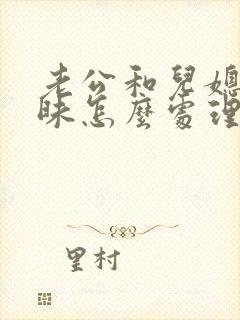 老公和兒媳
昧怎麼處理
里村